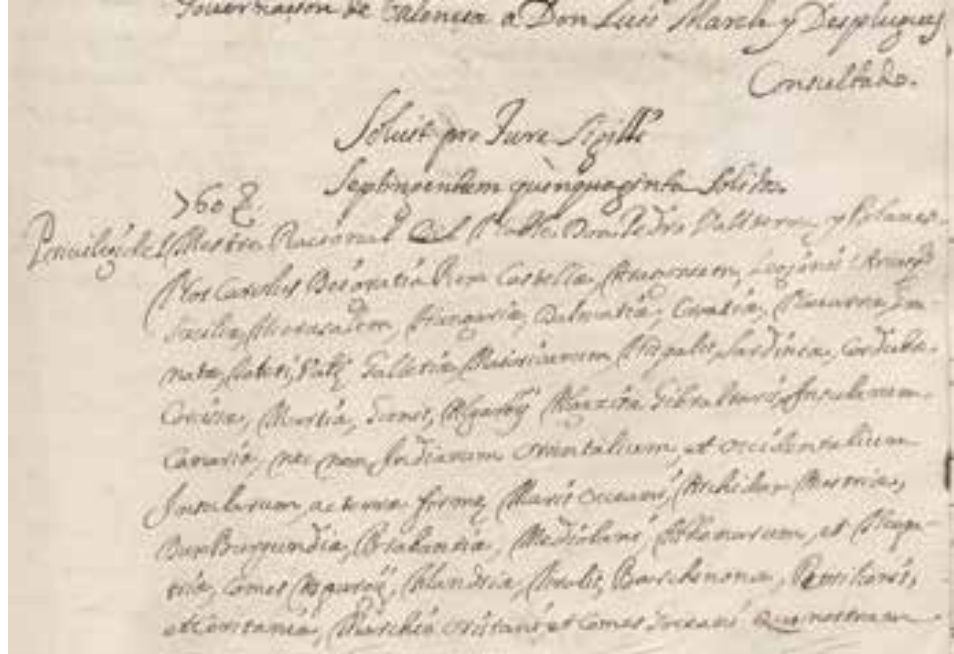 Governacion de Valencia a Don Luis March y Despluguez
Consultado.
Soluit pro Jure Sigilli
Septingentum quinquaginta solidos
760
Privilegi de Mestre Racional del Noble Don Pedro Valterra y Blanes.
Nos Carolus Dei gratia Rex Castellæ, Aragonum, Legionis
Siciliæ, Hierusalem, Hungariæ, Dalmatiæ, Croatiæ, Navarræ, Gra-
natæ, Toleti, Galletiæ, Maioricarum, Hispalis, Sardiniæ, Cordubæ,
Corsicæ, Murtiæ, Giennis, Algarbij Algeziræ Gibraltaris, Insularum
Canariæ, nec non Indiarum orientalium, et occidentalium
Insularum, ac terræ firmæ, Maris occeani, Archidux Austriæ,
Dux Burgundiæ, Brabantiæ, Mediolani, Athenarum, et Neopa-
triæ, Comes Flandriæ, Tirolis, Barchinonæ, Rossilionis,
et Ceritaniæ, Marchio oristani et Comes Gociani